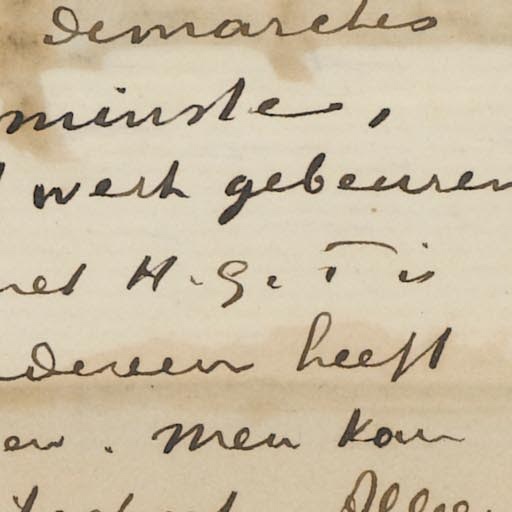 Demarches
minste,
werk gebeuren
met H.G.T is
dereen heeft
en. Men kan